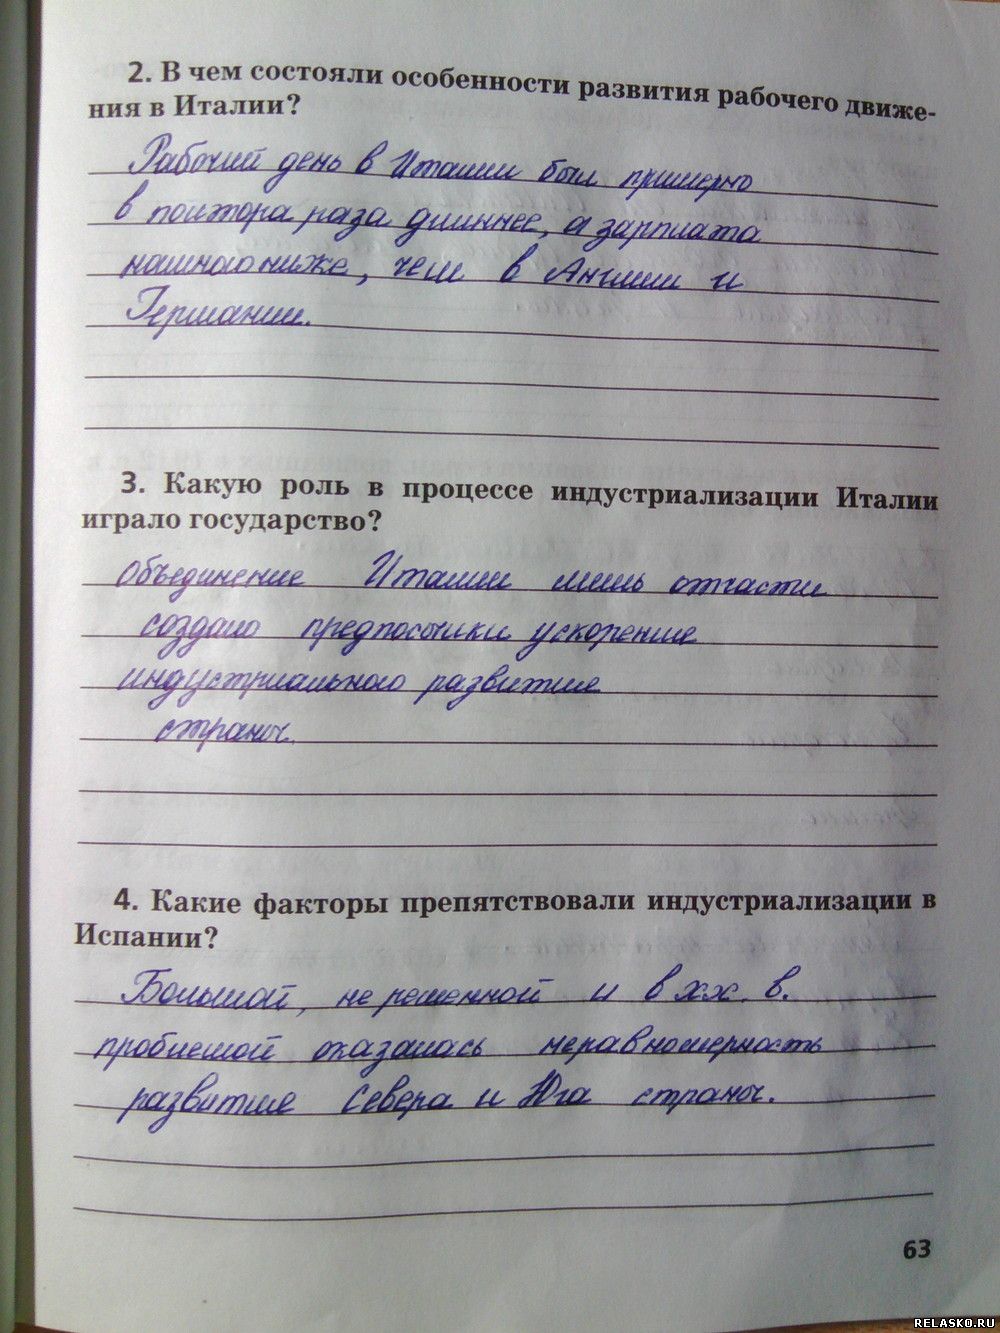 2. В чем состояли особенности развития рабочего движе-
ния в Италии?
Рабочий день в Италии был примерно
в полтора раза длиннее, а зарплата
намного ниже, чем в Англии и
Германии.
3. Какую роль в процессе индустриализации Италии
играло государство?
объединение Италии лишь отчасти
создало предпосылки ускорение
индустриального развитие
страны.
4. Какие факторы препятствовали индустриализации в
Испании?
Большой, не решенной и в хх. в.
проблемой оказалась неравномерность
развитие Севера и Юга страны.
63
RELASKO.RU